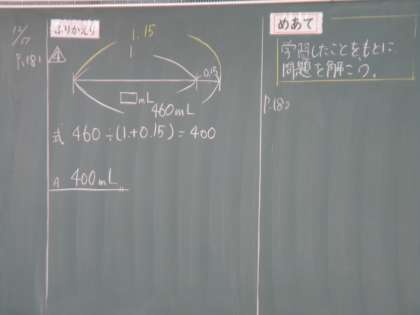 12/17
P.181
ふりかえり
4
1.15
1
0.15
□mL
460mL
式 460÷(1+0.15)=400
A 400mL
めあて
学習したことをもとに
問題を解こう。
P.182